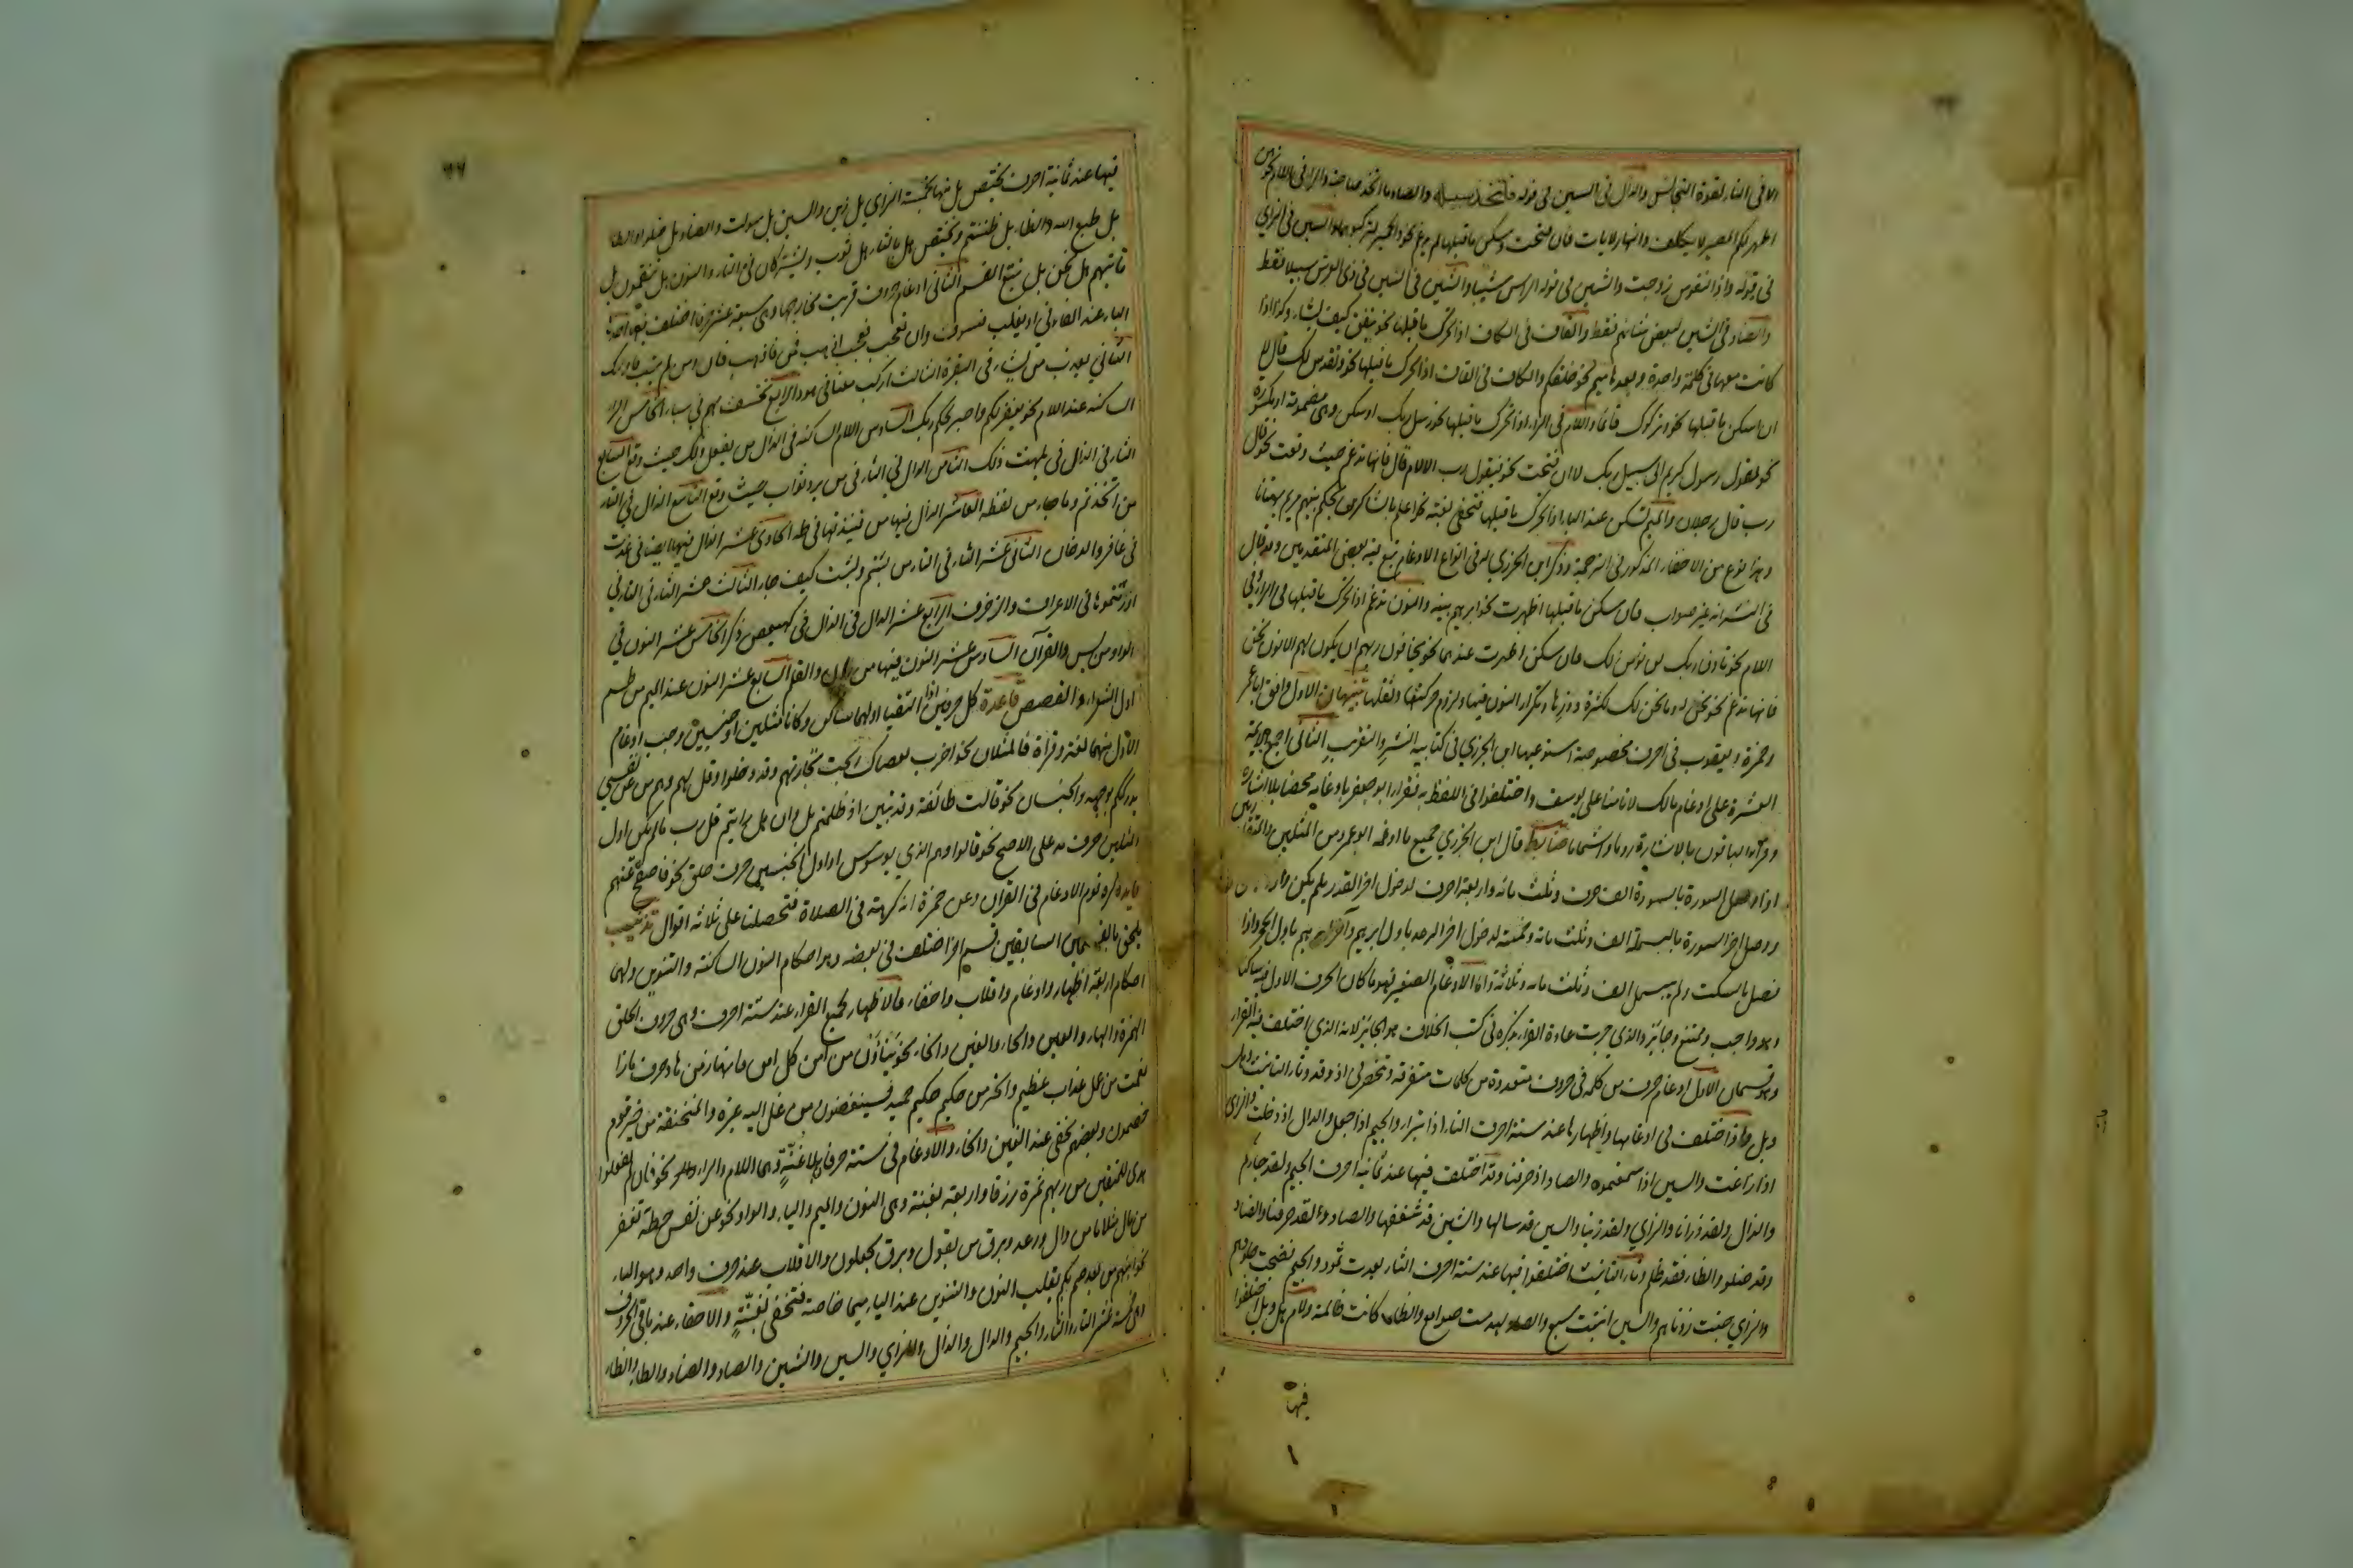 الا فی النار لقوة التجانس والذال فی السین فی قوله فاتخذ سبیله والصاد ما اتخذ صاحبة والراء فی اللام نحو هن
اطهر لکم المصیر لا یکلف والنهار لایات فان فتحت وسکن ما قبلها لم یدغم نحو والحمیر لترکبوها والسین فی الزای
فی قوله واذا النفوس زوجت والشین فی قوله الراس شیبا والشین فی السین فی ذی العرش سبیلا فقط
والضاد فی الشین لبعض شانهم فقط والقاف فی الکاف اذا تحرک ما قبلها نحو ینفق کیف یشاء وکذا اذا
کانت معها فی کلمة واحدة وبعدها میم نحو خلقکم والکاف فی القاف اذا تحرک ما قبلها نحو ونقدس لک قال لا
ان سکن ما قبلها نحو وترکوک قائما واللام فی الراء اذا تحرک ما قبلها نحو رسل ربک او سکن وهی مضمومة او مکسورة
نحو لقول رسول کریم الی سبیل ربک لا ان فتحت نحو فیقول رب الا لام قال فانها تدغم حیث وقعت نحو قال
رب قال رجلان والمیم تسکن عند الباء اذا تحرک ما قبلها فتخفی بغنة نحو اعلم بالشاکرین یحکم بینهم مریم بهتانا
وهذا نوع من الاخفاء المذکور فی الترجمة وذکر ابن الجزری له فی انواع الادغام تبع فیه بعض المتقدمین وقد قال
فی النشر انه غیر صواب فان سکن ما قبلها اظهرت نحو ابرهیم بنیه والنون تدغم اذا تحرک ما قبلها فی الراء وفی
اللام نحو تاذن ربک لن نؤمن لک فان سکن اظهرت عندهما نحو یخافون ربهم ان یکون لهم الا نون نحن
فانها تدغم نحو نحن له وما نحن لک لکثرة دورها وتکرار النون فیها ولزوم حرکتها وثقلها تنبیهان الاول وافق ابا عمرو
وحمزة ویعقوب فی احرف مخصوصة استوعبها ابن الجزری فی کتابیه النشر والتقریب الثانی اجمع الائمة
العشرة علی ادغام مالک لا تامنا علی یوسف واختلفوا فی اللفظ به فقرا ابو جعفر بادغامه محضا بلا اشارة
وقراه الباقون بالاشارة روما واشماما ضابط قال ابن الجزری جمیع ما ادغمه ابو عمرو من المثلین والمتقاربین
اذا وصل السورة بالسورة الف حرف وثلث مائة واربعة احرف لدخول اخر القدر بلم یکن
ووصل اخر السورة بالبسملة الف وثلث مائة وخمسة لدخول اخر الرعد باول ابرهیم واخر ابرهیم باول الحجر واذا
فصل بالسکت ولم یبسمل الف وثلث مائة وثلاثة واما الادغام الصغیر فهو ما کان الحرف الاول فیه ساکنا
وهو واجب وممتنع وجایز والذی جرت عادة القراء بذکره فی کتب الخلاف هو الجایز لانه الذی اختلف فیه القراء
وهو قسمان الاول ادغام حرف من کلمة فی حروف متعددة من کلمات متفرقة وتنحصر فی اذ وقد وتاء التانیث وهل
وبل فاذ اختلف فی ادغامها واظهارها عند ستة احرف التاء اذ تبرا والجیم اذ جعل والدال اذ دخلت والزای
اذ زاغت والسین اذ سمعتموه والصاد اذ صرفنا وقد اختلف فیها عند ثمانیة احرف الجیم ولقد جاءکم
والذال ولقد ذرانا والزای ولقد زینا والسین قد سالها والشین قد شغفها والصاد ولقد صرفنا والضاد
وقد ضلوا والظاء فقد ظلم وتاء التانیث اختلفوا فیها عند ستة احرف الثاء بعدت ثمود والجیم نضجت جلودهم
والزای خبت زدناهم والسین انبتت سبع والصاد لهدمت صوامع والظاء کانت ظالمة ولام هل وبل اختلفوا
فیها
فیها عند ثمانیة احرف یختص بل منها بخمسة الزای بل زین والسین بل سولت والضاد بل ضلوا والطا
بل طبع الله والظاء بل ظننتم ویختص هل بالثاء هل ثوب ویشترکان فی التاء والنون هل تنقمون بل
تاتیهم هل نحن بل نتبع القسم الثانی ادغام حروف قربت مخارجها وهی سبعة عشر حرفا اختلف فیها احدها
الباء عند الفاء فی او یغلب فسوف وان تعجب فعجب اذهب فمن فاذهب فان ومن لم یتب فاولئک
الثانی یعذب من یشاء فی البقرة الثالث ارکب معنا فی هود الرابع نخسف بهم فی سبا الخامس الراء
الساکنة عند اللام نحو یغفر لکم واصبر لحکم ربک السادس اللام الساکنة فی الذال من یفعل ذلک حیث وقع السابع
الثاء فی الذال فی یلهث ذلک الثامن الدال فی الثاء فی من یرد ثواب حیث وقع التاسع الذال فی التاء
من اتخذتم وما جاء من لفظه العاشر الذال فیها من فنبذتها فی طه الحادی عشر الذال فیها ایضا فی عذت
فی غافر والدخان الثانی عشر الثاء فی التاء من لبثتم ولبثت کیف جاء الثالث عشر الثاء فی التاء فی
اورثتموها فی الاعراف والزخرف الرابع عشر الدال فی الذال فی کهیعص ذکر الخامس عشر النون فی
الواو من یس والقرآن السادس عشر النون فیها من ن والقلم السابع عشر النون عند المیم من طسم
اول الشعراء والقصص قاعدة کل حرفین اذا التقیا اولهما ساکن وکانا مثلین او جنسین وجب ادغام
الاول منهما لغة وقراة فالمثلان نحو اضرب بعصاک ربحت تجارتهم وقد دخلوا وقل لهم وهم من عن نفسی
یدرککم یوجهه والجنسان نحو قالت طائفة وقد تبین اذ ظلمتم بل ران هل رایتم قل رب ما لم یکن اول
المثلین حرف مد علی الاصح نحو قالوا وهم الذی یوسوس او اول الجنسین حرف حلق نحو فاصفح عنهم
فایدة کره قوم الادغام فی القرآن وعن حمزة انه کرهه فی الصلاة فتحصلنا علی ثلاثة اقوال تذنیب
یلحق بالقسمین السابقین قسم اخر اختلف فی بعضه وهو احکام النون الساکنة والتنوین ولهما
احکام اربعة اظهار وادغام واقلاب واخفاء فالاظهار لجمیع القراء عند ستة احرف وهی حروف الحلق
الهمزة والهاء والعین والحاء والغین والخاء نحو ینأون من آمن کل امن فانهار من هاد جرف هارا
نعمت من عمل عذاب عظیم وانحر من حکیم حکیم حمید فسینغضون من غل اله غیره والمنخنقة من خیر قوم
خصمون وبعضهم یخفی عند الغین والخاء والادغام فی ستة حرفان بلا غنة وهما اللام والراء نحو فان لم تفعلوا
هدی للمتقین من ربهم ثمرة رزقا واربعة بغنة وهی النون والمیم والیاء والواو نحو عن نفس حطة نغفر
من مال مثلا ما من وال ورعد وبرق من یقول وبرق یجعلون والاقلاب عند حرف واحد وهو الباء
نحو انبئهم من بعدهم بکم یقلب النون والتنوین عند الباء میما خاصة فتخفی بغنة والاخفاء عند باقی الحروف
وهی خمسة عشر التاء والثاء والجیم والدال والذال والزای والسین والشین والصاد والضاد والطاء والظاء